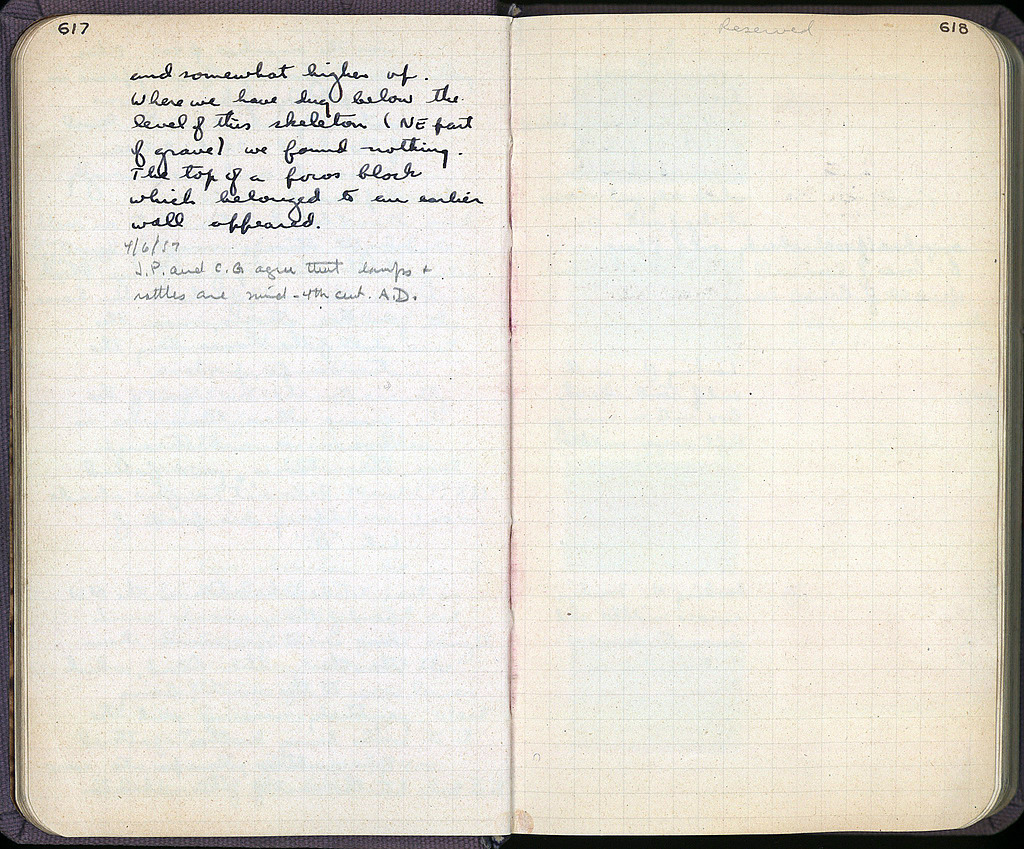 617
and somewhat higher up.
Where we have dug below the
level of this skeleton (NE part
of grave) we found nothing.
The top of a poros block
which belonged to an earlier
wall appeared.
4/6/57
J.P. and C.G agree that lamps +
rattles are mid-4th cent. A.D.
Reserved
618